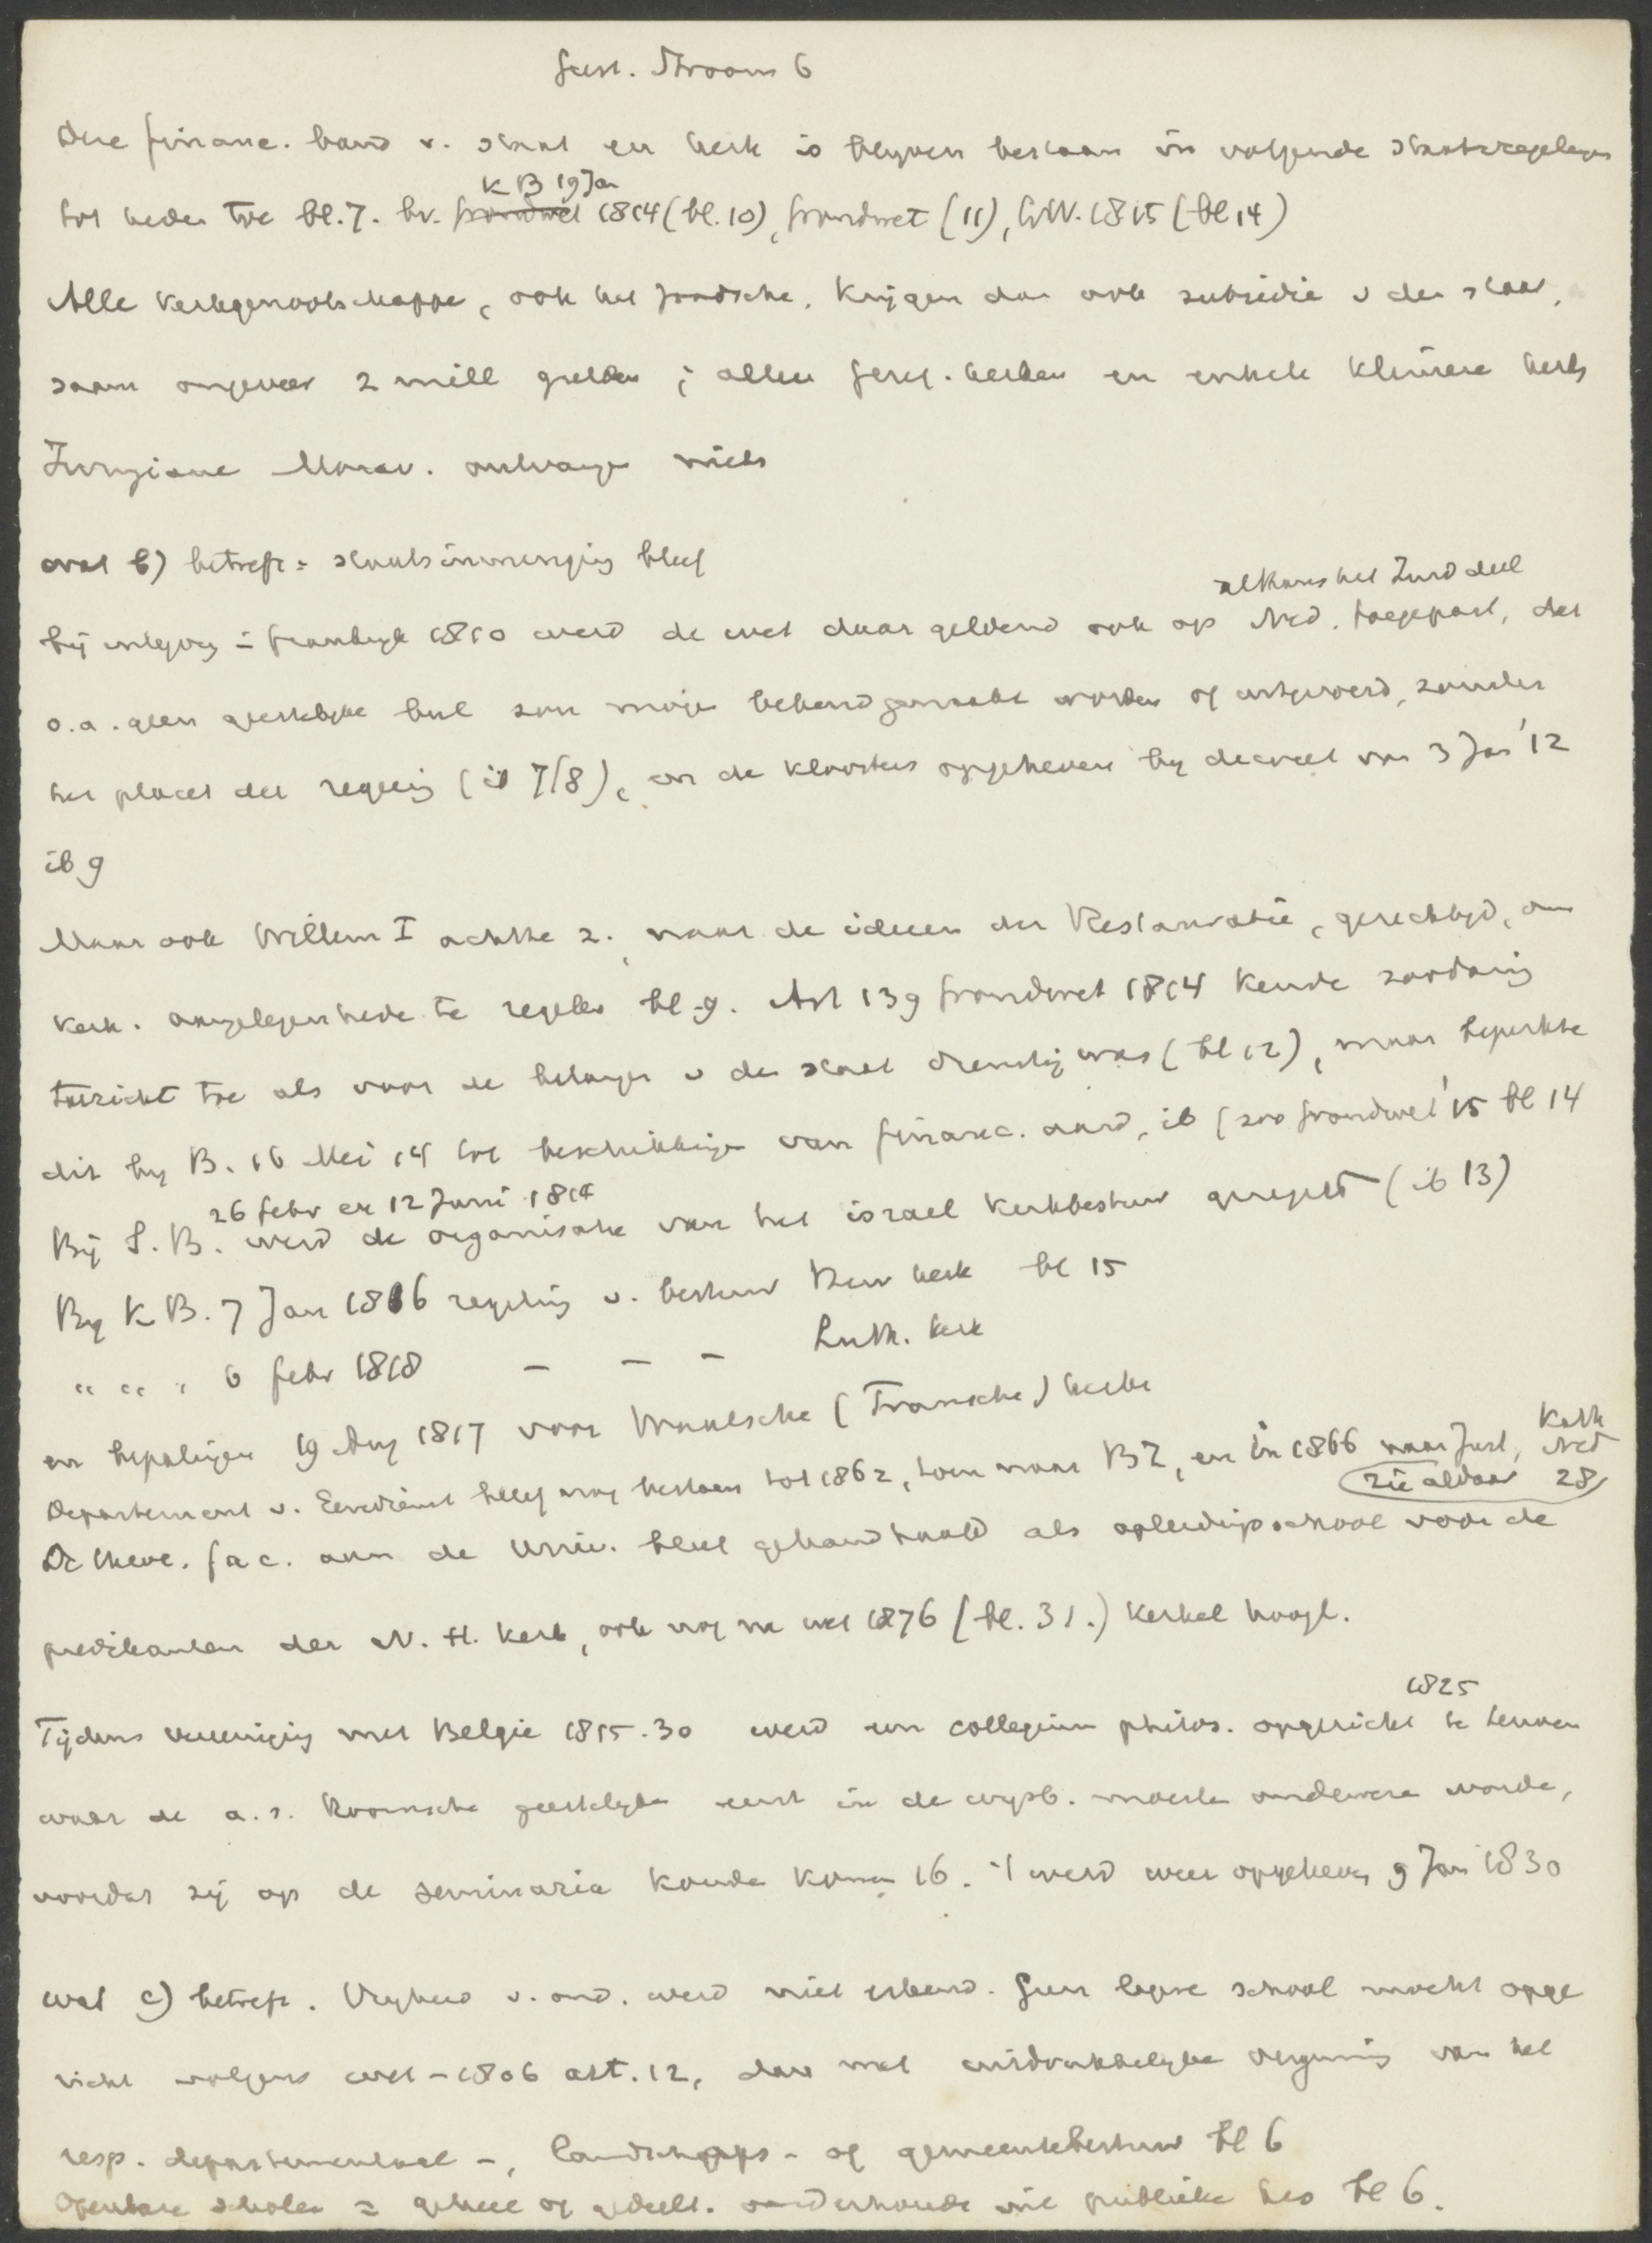 Geest. Stroom 6
Die financ. band v. staat en kerk is blijven bestaan in volgende staatsregelingen
K B 19 Jan
tot heden toe bl. 7. bv. grondwet 1814 (bl. 10), grondwet (11), GW. 1815 (bl 14)
Alle kerkgenootschappen, ook het Joodsche, krijgen dan ook subsidie v den staat,
saam ongeveer 2 mill gulden; alleen Geref. kerken en enkele kleinere kerk
Irvingiane Morav. ontvangen niets
wat b) betreft = staatsinmenging bleef
althans het Zuid deel
bij inlijving = Frankryk 1810 werd de wet daar geldend ook op Ned. toegepast, dat
o.a. geen geestelijke bul zou mogen bekendgemaakt worden of uitgevoerd, zonder
het placet der regeering (ib 7/8), en de kloosters opgeheven by decreet van 3 Jan '12
ib 9
Maar ook Willem I achtte z., naar de ideeen der Restauratie, gerechtigd, om
kerk. aangelegenheden te regelen bl. 9. Art 139 grondwet 1814 kende zoodanig
toezicht toe als voor de belangen v den staat dienstig was (bl 12), maar beperkte
dit by B. 16 Mei 14 tot beschikkingen van financ. aard, ib (zoo grondwet '15 bl 14
26 febr en 12 Juni 1814
Bij S. B. werd de organisatie van het israel kerkbestuur geregeld (ib 13)
By K B. 7 Jan 1816 regeling v. bestuur Herv kerk bl 15
" " " 6 febr 1818 — — — Luth. kerk
en bepalingen 19 Aug 1817 voor Waalsche (Fransche) kerken
Kath
Departement v. Eeredienst bleef nog bestaan tot 1862, toen naar BZ, en in 1866 naar Just, Ned
zie aldaar 28
De theol. fac. aan de Univ. bleef gehandhaafd als opleidingsschool voor de
predikanten der N. H. Kerk, ook nog na wet 1876 (bl. 31.) kerkel hoogl.
1825
Tijdens vereeniging met Belgie 1815-30 werd een collegium philos. opgericht te Leuven
waar de a.s. Roomsche geestelyken eerst in de wysb. moesten onderwezen worden,
voordat zij op de seminaria konden komen 16. 't werd weer opgeheven 9 Jan 1830
wat c) betreft. Vryheid v. ond. werd niet erkend. Geen lagere school mocht opge
richt volgens wet - 1806 art. 12, dan met uitdrukkelyke vergunning van het
resp. departementaal -, landschaps- of gemeentebestuur bl 6
Openbare scholen = geheel of gedeelt. onderhouden uit publieke kas bl 6.